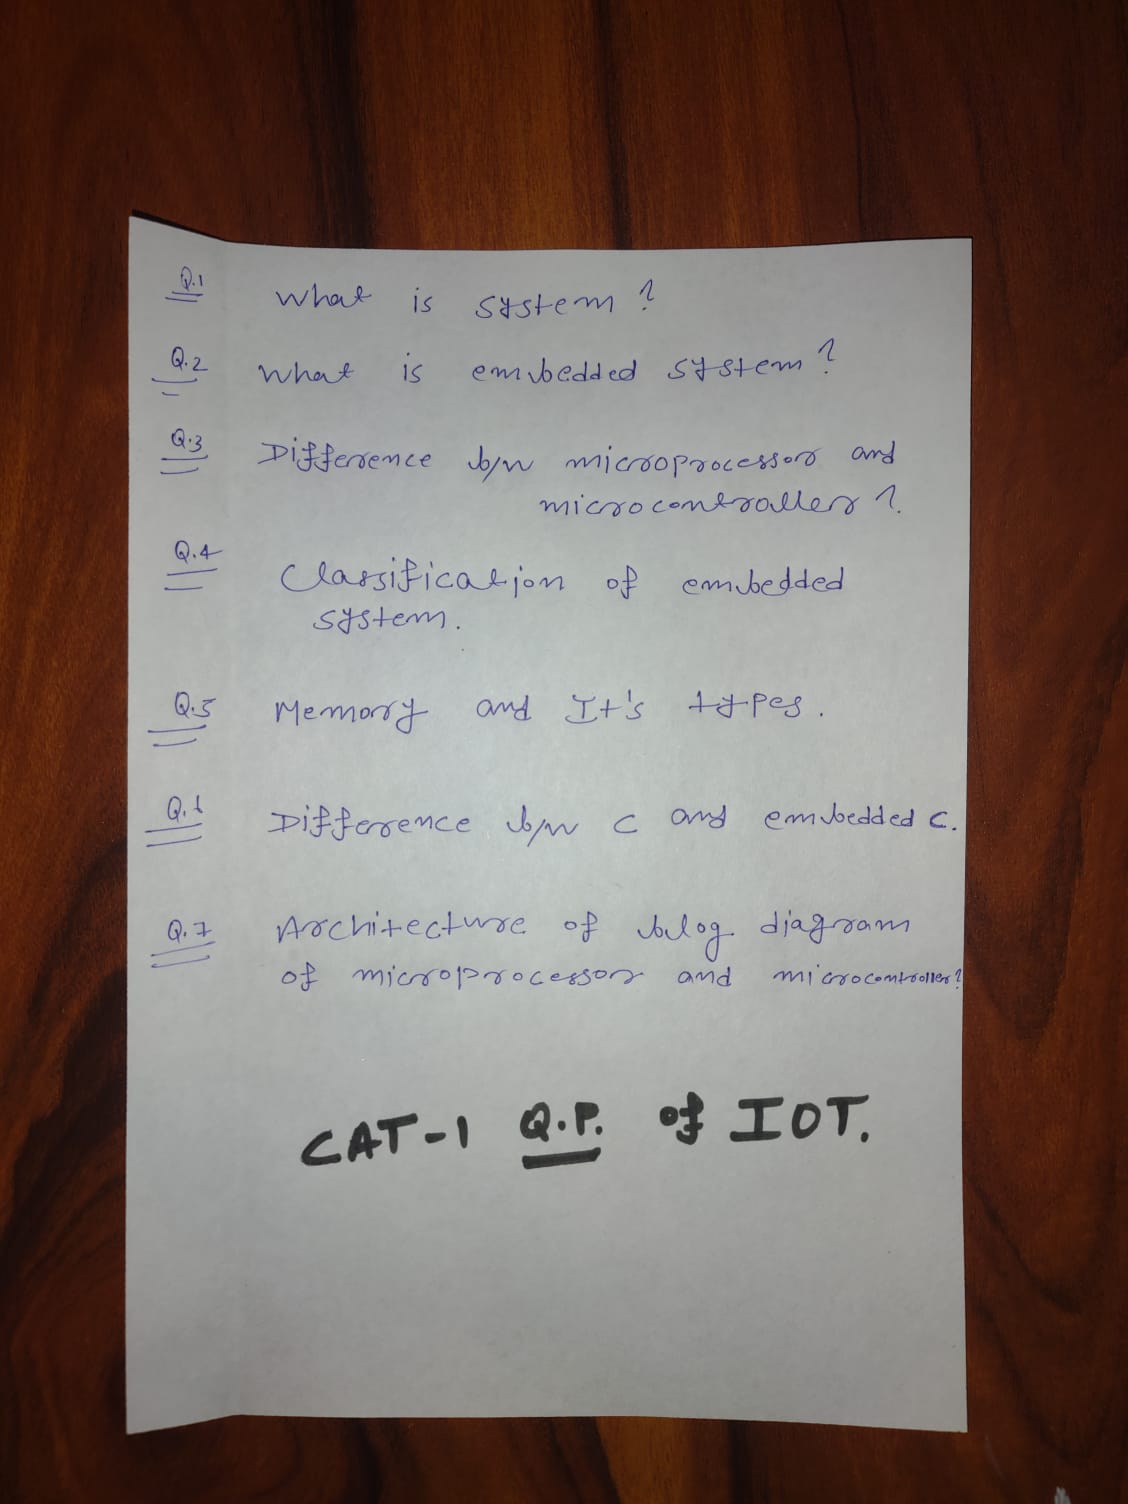 Q.1 What is system ?
Q.2 What is embedded system ?
Q.3 Difference b/w microprocessor and
microcontroller ?
Q.4 Classification of embedded
system.
Q.5 Memory and It's types.
Q.6 Difference b/w C and embedded C.
Q.7 Architecture of blog diagram
of microprocessor and microcontroller?
CAT-1 Q.P. of IOT.